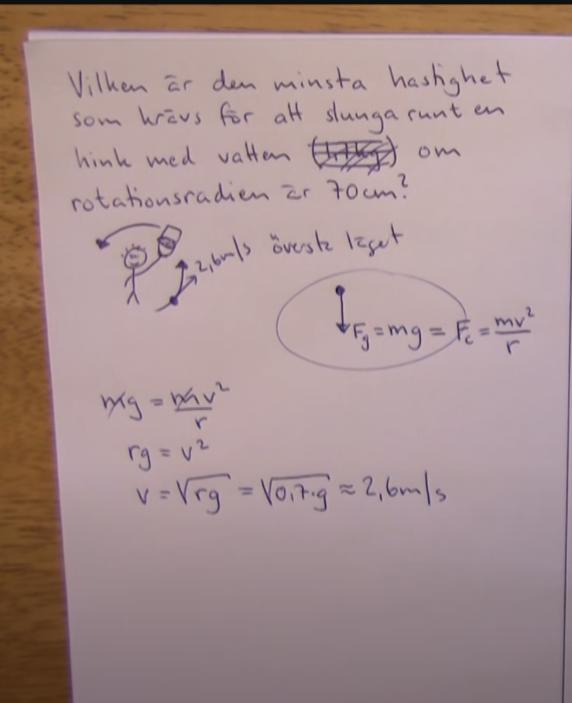 Vilken är den minsta hastighet
som krävs för att slunga runt en
hink med vatten om
rotationsradien är 70cm?
2,6m/s översta läget
Fg = mg = Fc = mv²/r
mg = mv²/r
rg = v²
v = √rg = √0,7·g ≈ 2,6m/s